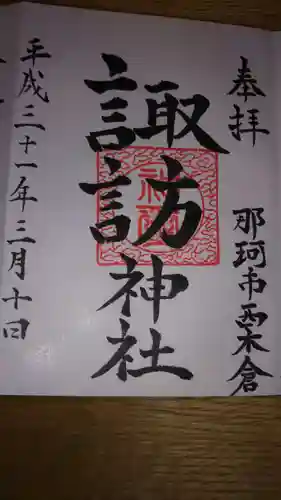 奉拝
那珂市栗木倉
諏訪神社
平成三十一年三月十四日